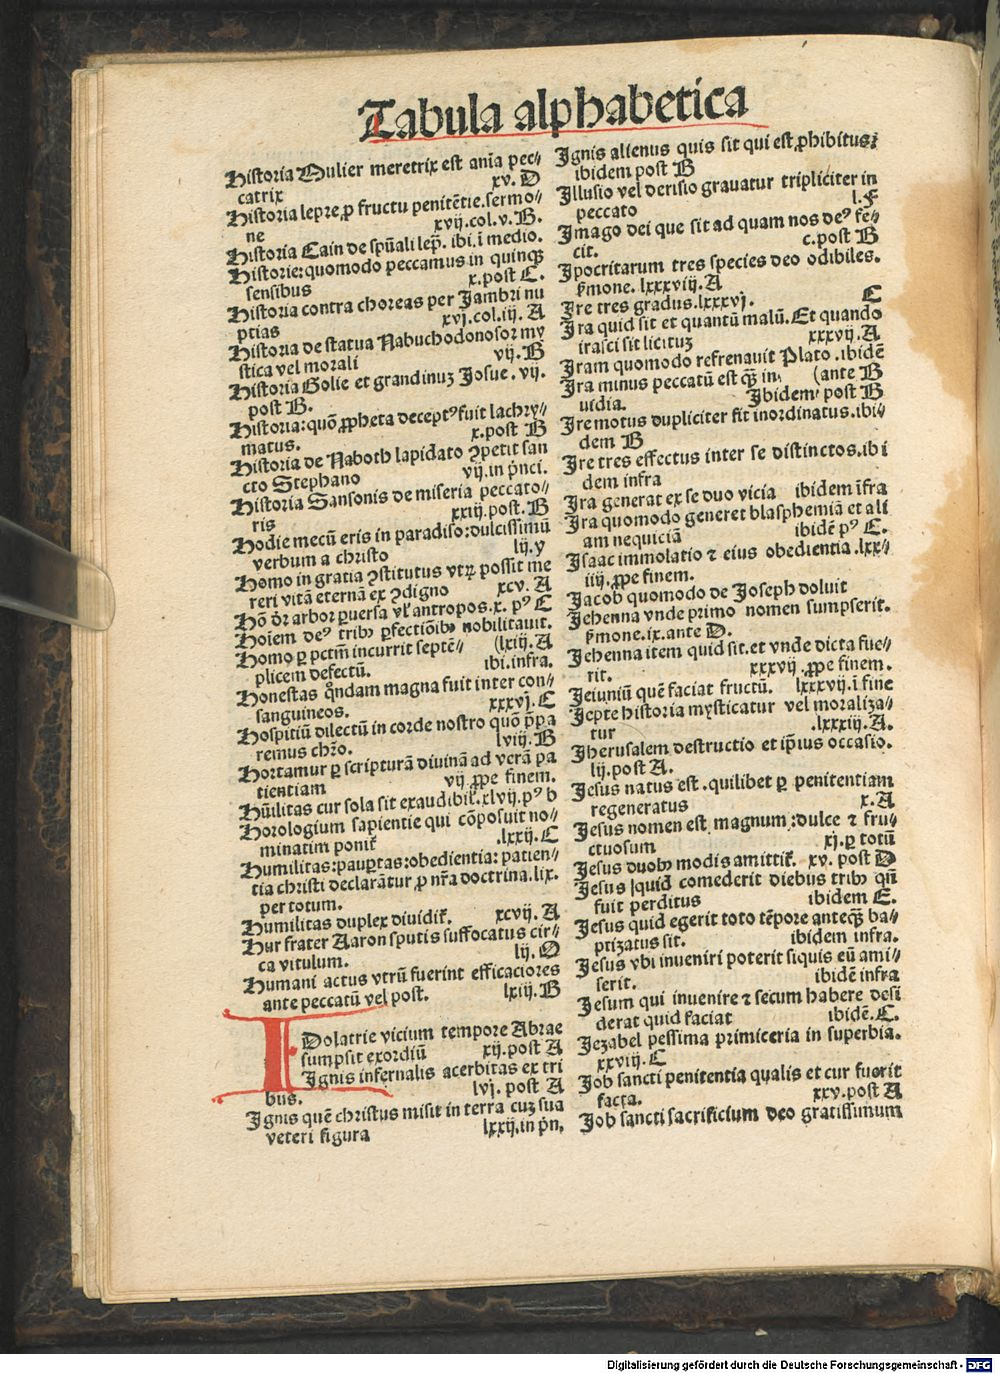 Tabula alphabetica
Historia Mulier meretrix est anīa pec⸗
catrix xv. D
Historia lepre, ꝓ fructu penitētie. sermo⸗
ne xvij. col. v. B.
Historia Cain de spūali lep̄. ibi. ī medio.
Historie: quomodo peccamus in quinqꝫ
sensibus x. post C.
Historia contra choreas per Jambri nu
ptias xvj. col. iij. A
Historia de statua Nabuchodonosor my
stica vel morali vij. B
Historia Golie et grandinuꝫ Josue. vij.
post B.
Historia: quō ꝓpheta deceptꝰ fuit lachry⸗
matus. x. post B
Historia de Naboth lapidato ꝯpetit san
cto Stephano vij. in pṅci.
Historia Sansonis de miseria peccato⸗
ris xxiij. post. B
Hodie mecū eris in paradiso: dulcissimū
verbum a christo lij. y
Homo in gratia ꝯstitutus vtꝝ possit me
reri vitā eternā ex ꝯdigno xcv. A
Hō dr̄ arbor ꝑuersa vl̓ antropos. x. pꝰ C
Hoīem deꝰ tribꝫ ꝑfectiōibꝫ nobilitauit.
Homo ꝑ pctm̄ incurrit septē⸗ (lxiij. A
plicem defectū. ibi. infra.
Honestas qn̄dam magna fuit inter con⸗
sanguineos. xxxvj. C
Hospitiū dilectū in corde nostro quō p̄pa
remus chr̄o. lviij. B
Hortamur ꝑ scripturā diuinā ad verā pa
tientiam vij ꝓpe finem.
Hūilitas cur sola sit exaudibil̓. xlvij. pꝰ b
Horologium sapientie qui cōposuit no⸗
minatim ponit̓ .lxxij. C
Humilitas: pauꝑtas: obedientia: patien⸗
tia christi declarātur, ꝓ nr̄a doctrina. lix.
per totum.
Humilitas duplex diuidit̓. xcvij. A
Hur frater Aaron sputis suffocatus cir⸗
ca vitulum. lij. O
Humani actus vtrū fuerint efficaciores
ante peccatū vel post. lxiij. B
IDolatrie vicium tempore Abrae
sumpsit exordiū xij. post A
Ignis infernalis acerbitas ex tri
bus. lvj. post A
Ignis quē christus misit in terra cuꝫ sua
veteri figura lxxij. in pn̄.
Ignis alienus quis sit qui est ꝓhibitus:
ibidem post B
Illusio vel derisio grauatur tripliciter in
peccato l. F
Imago dei que sit ad quam nos deꝰ fe⸗
cit. c. post B
Ipocritarum tres species deo odibiles.
s̓mone. lxxxviij. A
Ire tres gradus. lxxxvj. C
Ira quid sit et quantū malū. Et quando
irasci sit licituꝫ xxxvij. A
Iram quomodo refrenauit Plato. ibidē
Ira minus peccatū est qꝫ̄ in⸗ (ante B
uidia. Ibidem post B
Ire motus dupliciter fit inordinatus. ibi⸗
dem B
Ire tres effectus inter se distinctos. ib i
dem infra
Ira generat ex se duo vicia ibidem īfra
Ira quomodo generet blasphemiā et ali
am nequiciā ibidē pꝰ C.
Isaac immolatio ⁊ eius obedientia. lxx⸗
iiij. ꝓpe finem.
Jacob quomodo de Joseph doluit
Jehenna vnde primo nomen sumpserit.
s̓mone. ix. ante D.
Jehenna item quid sit. et vnde dicta fue⸗
rit. xxxvij ꝓpe finem.
Jeiuniū quē faciat fructū. lxxxvij. ī fine
Jepte historia mysticatur vel moraliza⸗
tur .lxxxiij. A.
Jherusalem destructio et ip̄ius occasio.
lij. post A.
Jesus natus est. quilibet ꝑ penitentiam
regeneratus x. A
Jesus nomen est magnum: dulce ⁊ fru⸗
ctuosum xj. ꝑ totū
Jesus duobꝫ modis amittit̓. xv. post D
Jesus quid comederit diebus tribꝫ qn̄
fuit perditus ibidem E.
Jesus quid egerit toto tēpore anteqꝫ̄ ba⸗
ptizatus sit. ibidem infra.
Jesus vbi inueniri poterit siquis eū ami⸗
serit. ibidē infra
Jesum qui inuenire ⁊ secum habere desi
derat quid faciat ibidē. C.
Jezabel pessima primiceria in superbia.
xxviij. C
Job sancti penitentia qualis et cur fuerit
facta. xxv. post A
Job sancti sacrificium deo gratissimum
Digitalisierung gefördert durch die Deutsche Forschungsgemeinschaft - DFG